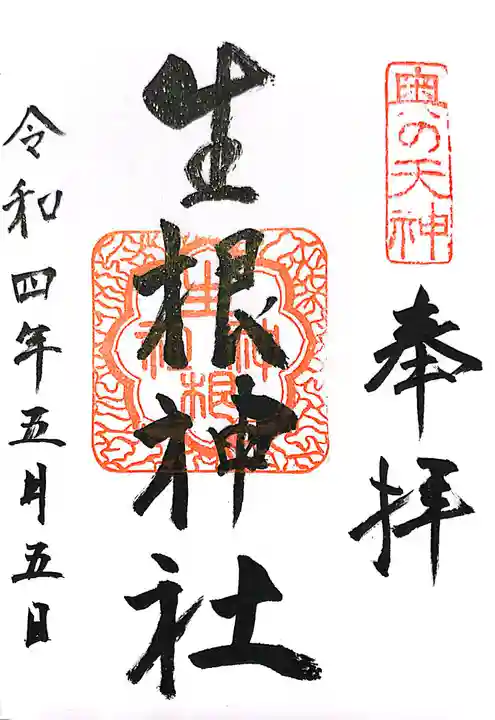 奥の天神
奉拝
生根神社
生根神社
令和四年五月五日